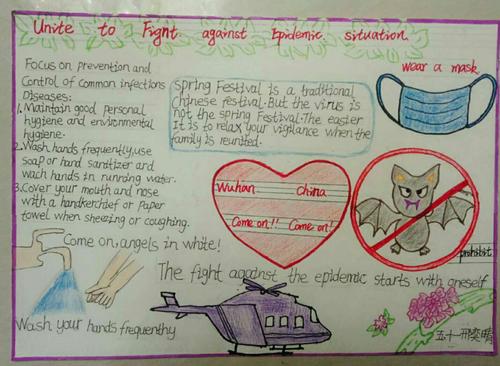 Unite to Fight against Epidemic situation.
Focus on prevention and
Control of common infections
Diseases:
1. Maintain good personal
hygiene and environmental
hygiene.
2. Wash hands frequently,use
soap or hand sanitizer and
wach hands in running water.
3. Cover your mouth and nose
with a handkerchief or paper
towel when sheezing or coughing.
Spring Festival is a traditional
Chinese festival. But the virus is
not the spring Festival. The easier
It is to relax your vigilance when the
family is reunited.
wear a mask
Wuhan China
Come on!! Come on!
prohibit
Come on, angels in white!
The fight against the epidemic starts with oneself
Wash your hands frequenthy
五十一邢奕晴